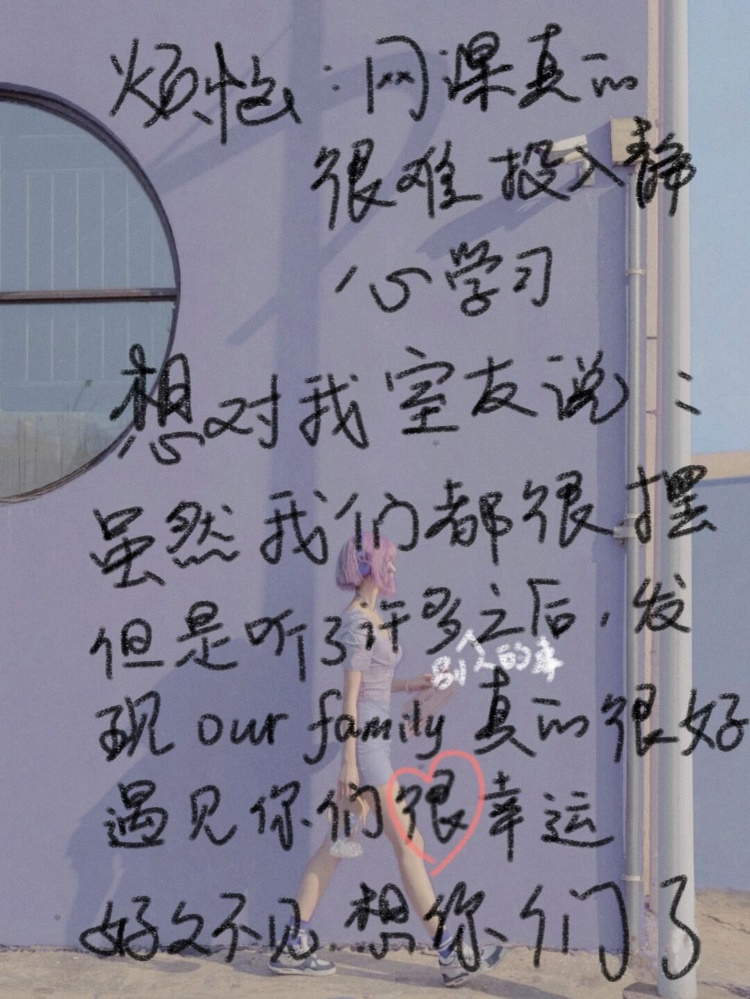 烦恼：网课真的
很难投入静
心学习
想对我室友说：
虽然我们都很摆
但是听了许多之后，发
别人的事
现 our family 真的很好
遇见你们很幸运
好久不见 想你们了